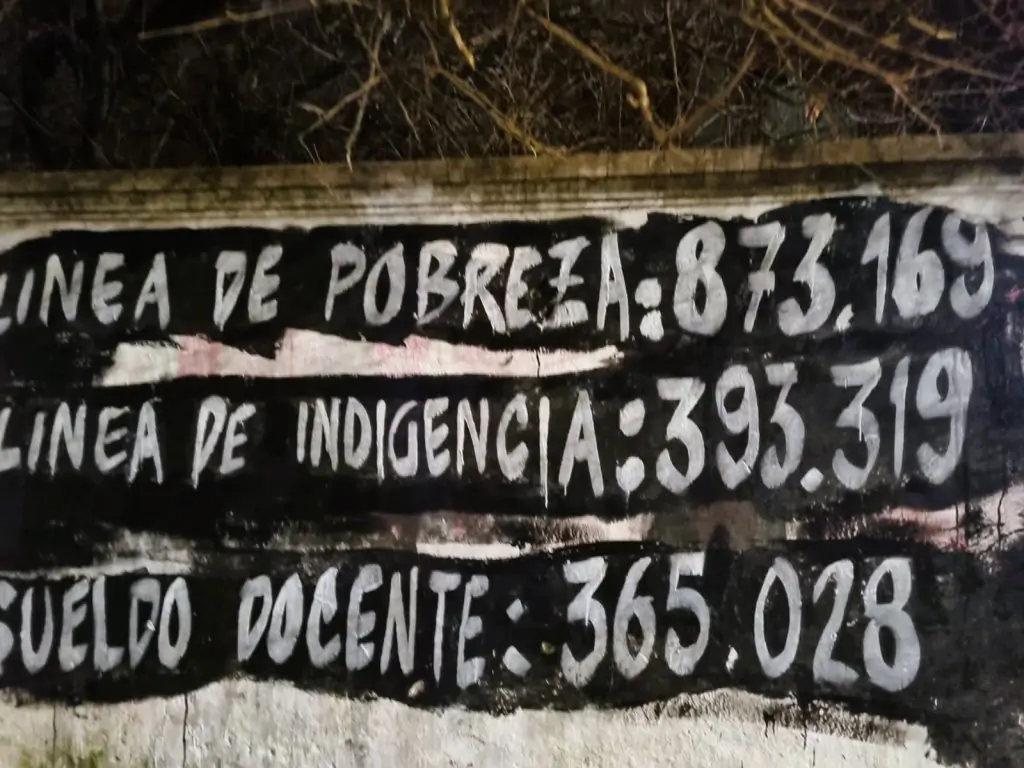 LINEA DE POBREZA: 873.169
LINEA DE INDIGENCIA: 393.319
SUELDO DOCENTE: 365.028